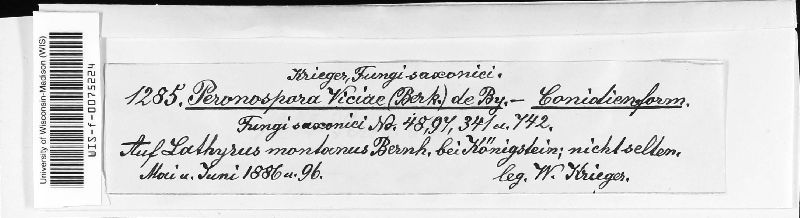 University of Wisconsin-Madison (WIS)
WIS-f-0075224
Krieger, Fungi saxonici.
1285. Peronospora Viciae (Berk.) de By. – Conidienform.
Fungi saxonici No. 48, 97, 341 u. 742.
Auf Lathyrus montanus Bernh. bei Königstein; nicht selten.
Mai u. Juni 1886 u. 96. leg. W. Krieger.